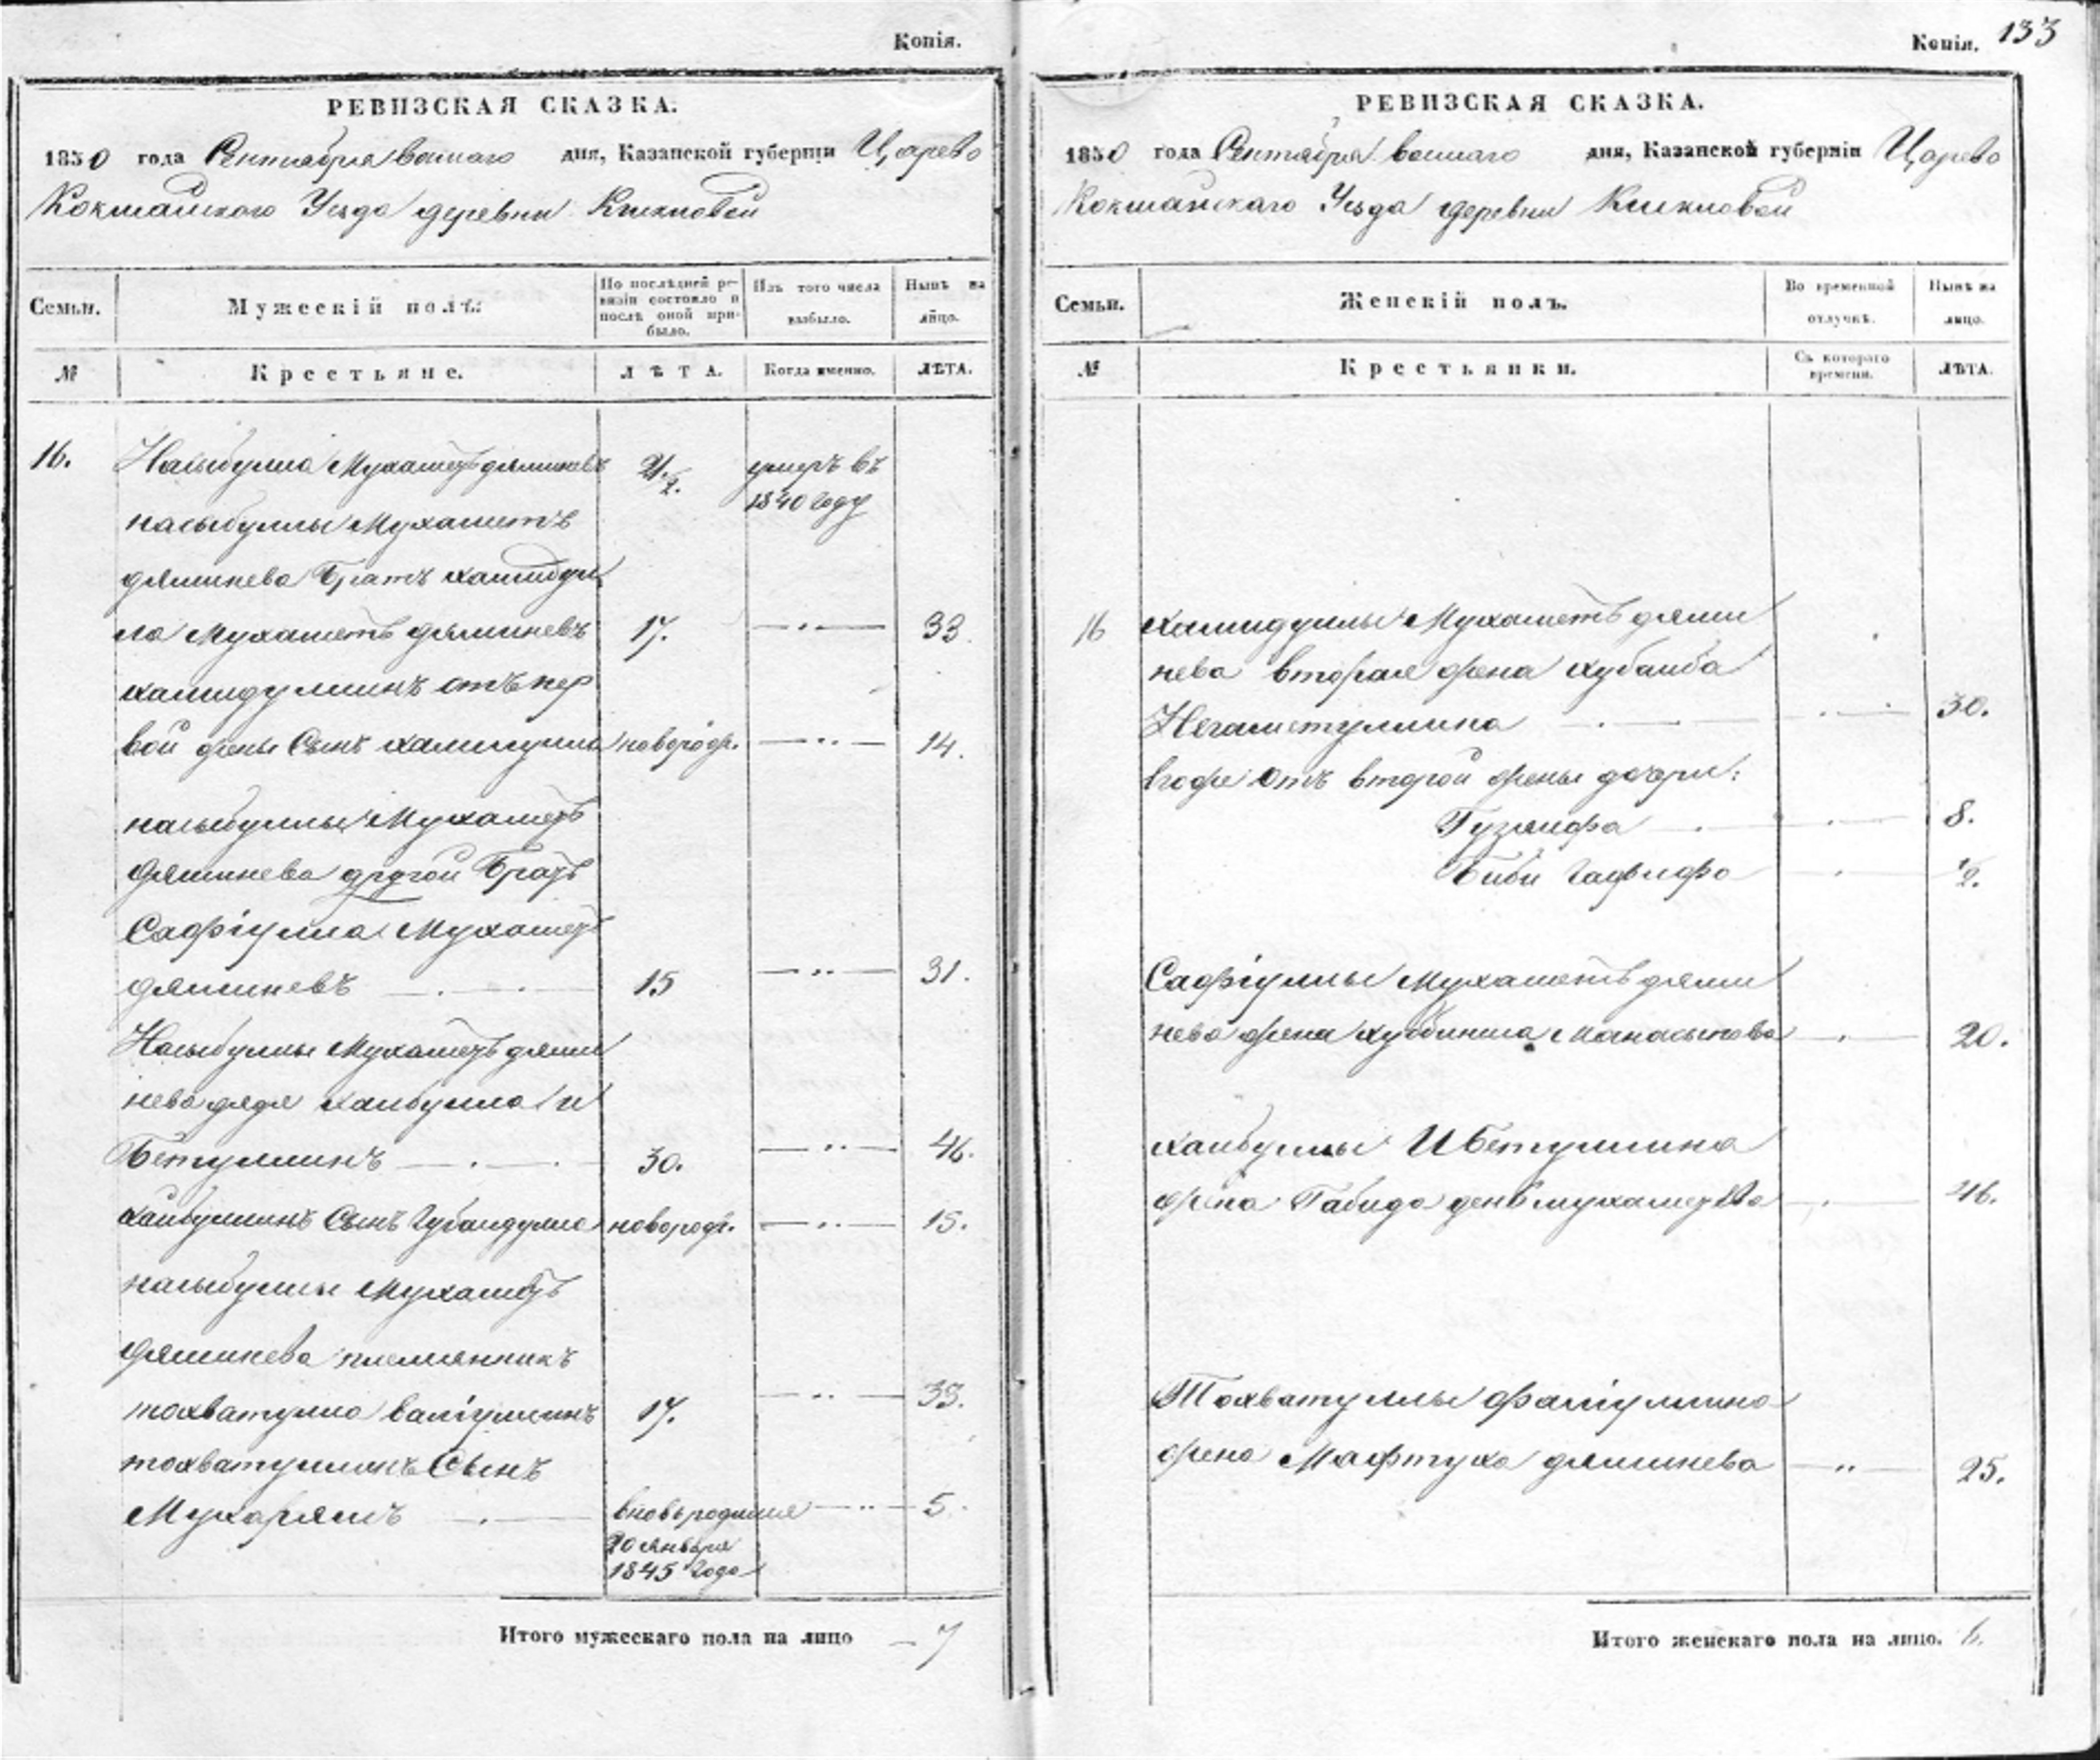 Копія.
РЕВИЗСКАЯ СКАЗКА.
1850 года Сентября восмаго дня, Казанской губерніи Царево
Кокшайского Уезда деревни
Семьи.
Мужескій полъ:
По послѣдней ре-
визіи состояло и
послѣ оной при-
было.
Изъ того числа
выбыло.
Нынѣ на
лицо.
№
Крестьяне.
ЛѢТА.
Когда именно.
ЛѢТА.
16.
Насыбулла Мухаметь дяминевъ 21/2. умеръ въ
1840 году
насыбуллы Мухаметъ
дяминева Братъ хамидул
ла Мухаметь дяминевъ 17. 33.
хамидуллинъ отъ пер
вой жены Сынъ новорож. 14.
насыбуллы Мухаметь
дяминева другой Братъ
Сафіулла Мухаметь
дяминевъ 15 31.
Насыбуллы Мухаметь дями
нева дядя хаибулла И
Бетуллинъ 30. 46.
хаибуллинъ Сынъ Губайдулла новорож. 15.
насыбуллы Мухаметь
дяминева племянникъ
тохватулла валіуллинъ 17. 33.
тохватуллинъ Сынъ
Мухарямъ вновьродился 5.
20 января
1845 года
Итого мужескаго пола на лицо 7
Копія. 133
РЕВИЗСКАЯ СКАЗКА.
1850 года Сентября восмаго дня, Казанской губерніи Царево
Кокшайскаго Уезда деревни
Семьи.
Женскій полъ.
Во временной
отлучкѣ.
Нынѣ на
лицо.
№
Крестьянки.
Съ котораго
времени.
ЛѢТА.
16 хамидуллы Мухаметь дями
нева вторая жена хубаиба
Негаметуллина 30.
Егоже отъ второй жены дочери:
Гузяифа 8.
Биби 1/2.
Сафіуллы Мухаметь дями
нева жена 20.
хаибуллы Ибетуллина
жена Габида 46.
Тохватуллы
жена Мафтуха дяминева 25.
Итого женскаго пола на лицо. 6.